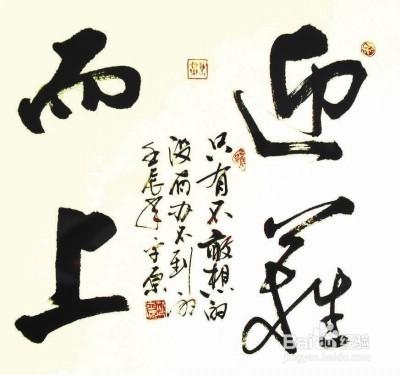 迎難
而上
只有不敢想的
没有办不到的
壬辰年
Baidu 经验
jingyan.baidu.com